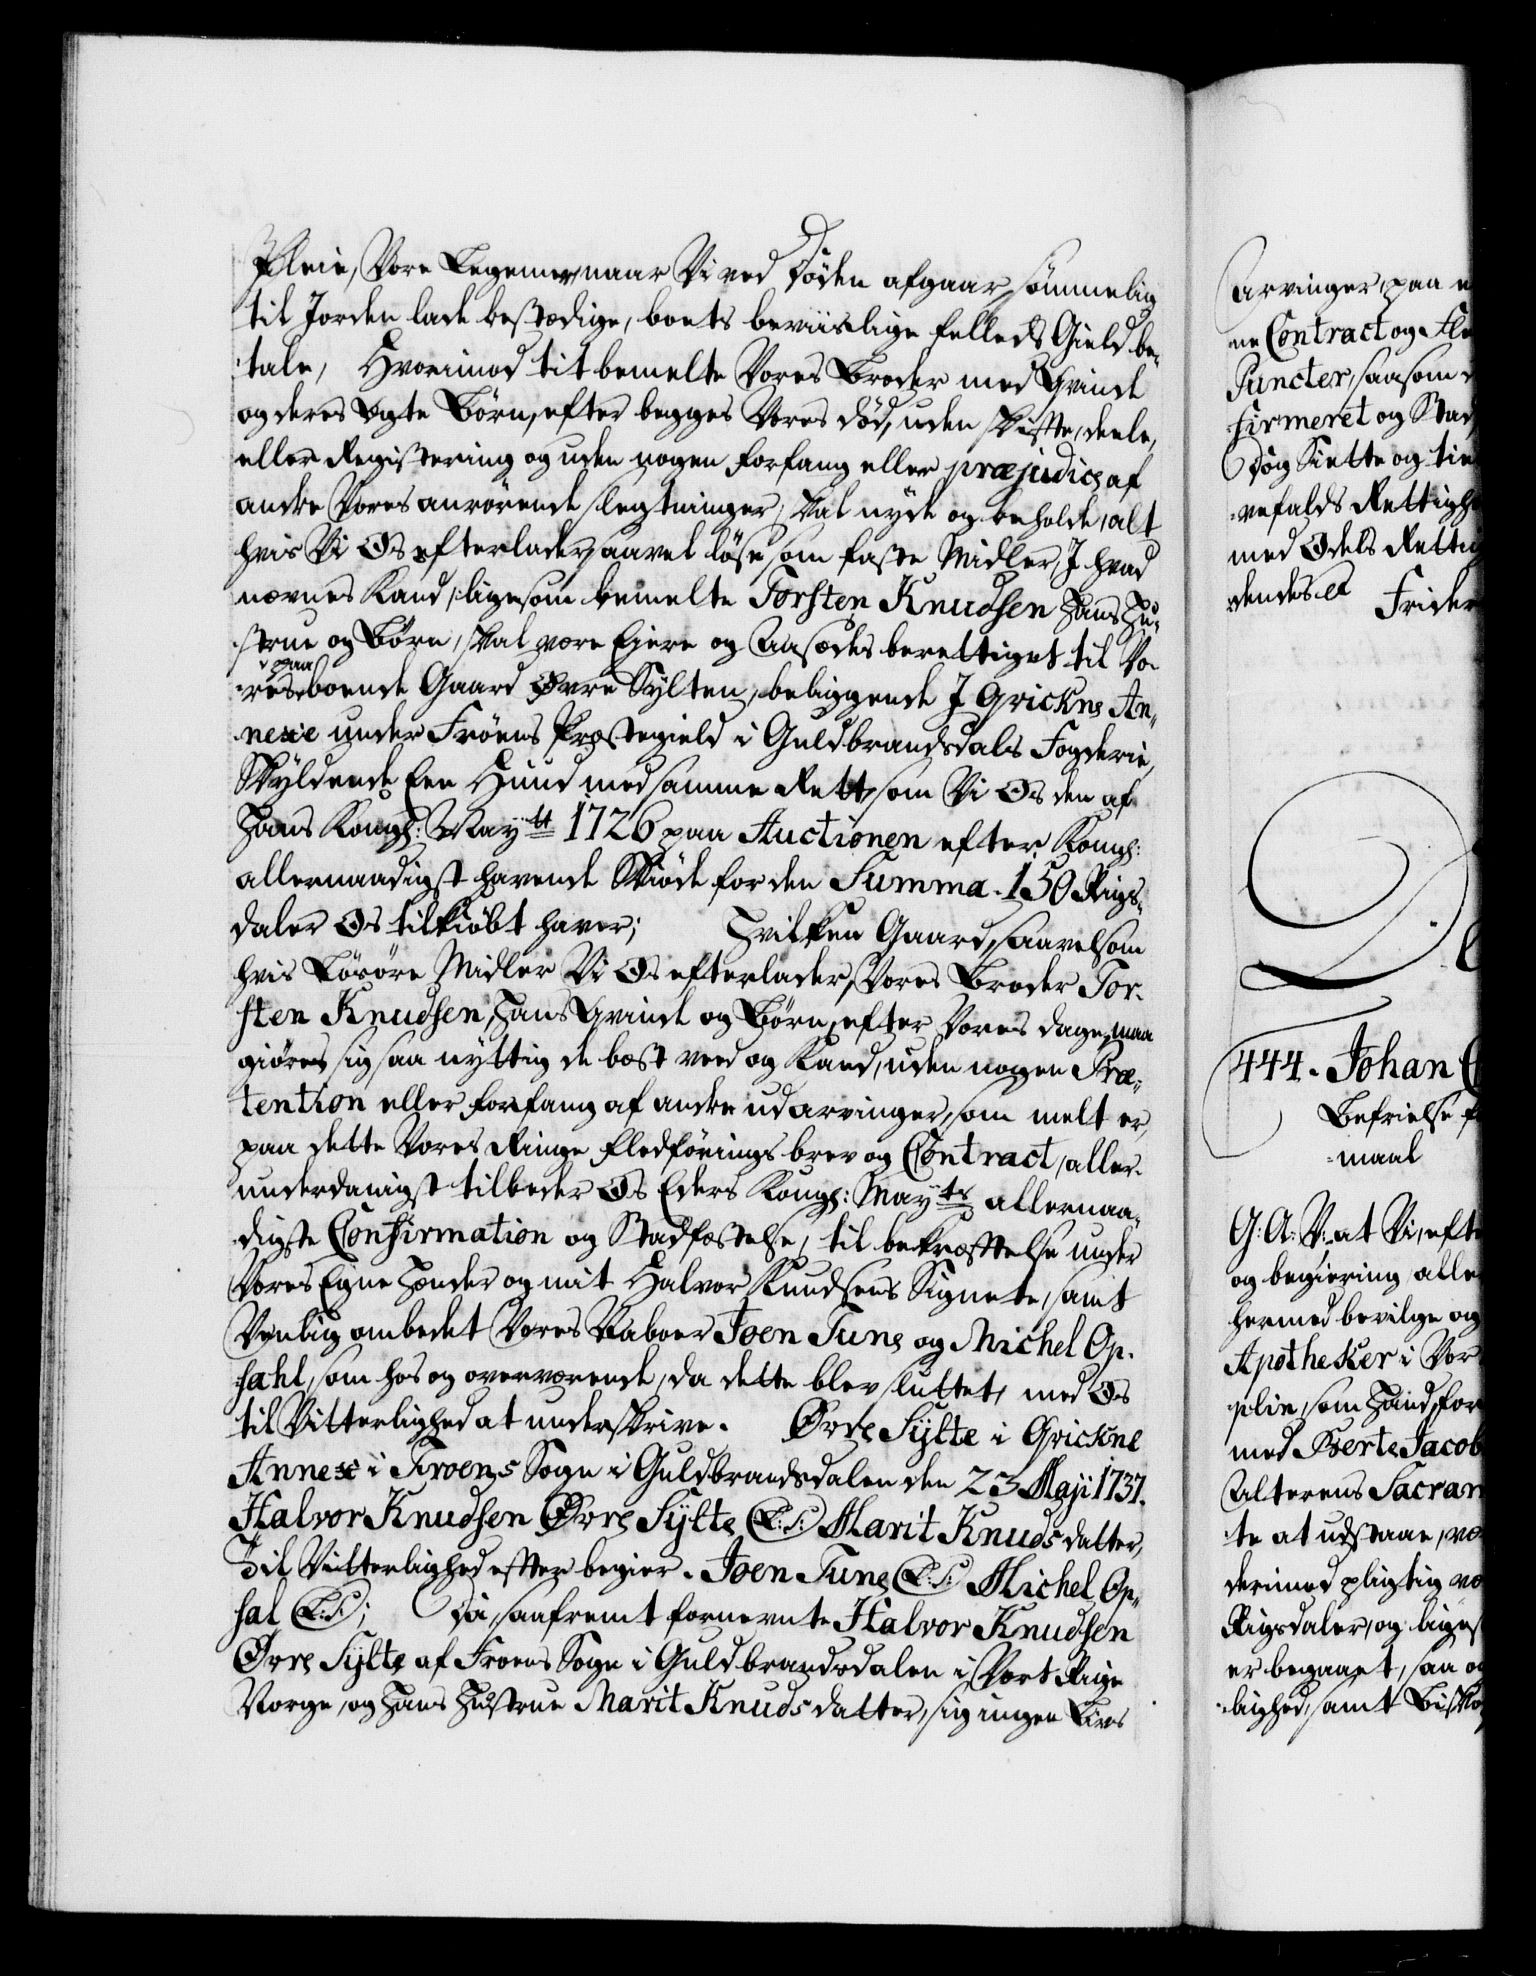 Pleie, Vore Legemer, naar Vi ved Döden afgaar, sömmelig
til Jorden lade bestædige, boets beviislige felleds Gield be„
tale, Hvorimod tit bemelte Vores Broder med Qvinde
og deres Ægte Börn, efter begges Vores död, uden skifte, deele,
eller Registering og uden nogen forfang eller præjudice af
andre Vores anrörende slegtninger, skal nyde og beholde, alt
hvis Vi Os efterlader, saavel löse som faste Midler, J hvad
nævnes kand, ligesom bemelte Torsten Knudsen Hans Hu„
strue og Börn, skal være Eiere og Aasædes berettiget til Vo„
res paa boende Gaard Øvre Sylten, beliggende J Qvickne An„
nexe under Fröens Præstegield i Guldbrandsdals Fogderie,
Skyldende Een Huud med samme Rett, som Vi Os den af
Hans Kongl: May: tt 1726 paa Auctionen efter Kongl:
allernaadigst havende Skiöde for den Summa. 150 Rigs„
daler Os tilkiöbt haver; Hvilken Gaard, saavelsom
hvis Lösöre Midler Vi Os efterlader, Vores Broder Tor„
sten Knudsen, Hans Qvinde og Börn, efter Vores dage, maa
giöre sig saa nyttig de bæst veed og kand, uden nogen Præ„
tention eller forfang af andre udarvinger, som melt er,
paa dette Vores Ringe fledförings brev og Contract, aller„
underdanigst tilbeder Os Eders Kongl: May: ts allernaa„
digste Confirmation og Stadfæstelse, til bekræfttelse under
Vores Egne Hænder og mit Halvor Knudsens Signete, samt
Venlig ombedet Vores Naboer Joen Tune og Michel Op„
sahl, som hos og overværende, da dette blev sluttet, med Os
til Vitterlighed at underskrive. Øvre Sylte i Qvickne
Annex i Froens Sogn i Guldbrandsdalen den 23 Maji 1737.
Halvor Knudsen Øvre Sylte (L:S:) Marit Knuds datter,
Til Vitterlighed effter begier. Joen Tune (L:S:) Michel Op„
sal (L:S:); Da, saafremt fornevnte Halvor Knudsen
Øvre Sylte af Froens Sogn i Guldbrandsdalen i Vort Rige
Norge, og Hans Hustrue Marit Knuds datter, sig ingen Livs
Arvinger, paa
ne Contract og Fle
Puncter, saasom
firmeret og Stad
Dog Siette og tie
vefalds Rettighe
med Odels Rettig
dendes Frider
444. Johan
Befrielse f
maal
G: A: V: at Vi, efte
og begiering alle
hermed bevilge og
Apotheker i Vor
plin, som Hand, for
med Berte Jacob
Alterens Sacram
te at udstaae, væ
derimod pligtig væ
Rigsdaler, og liges
er begaaet, saa og
lighed, samt Bisko